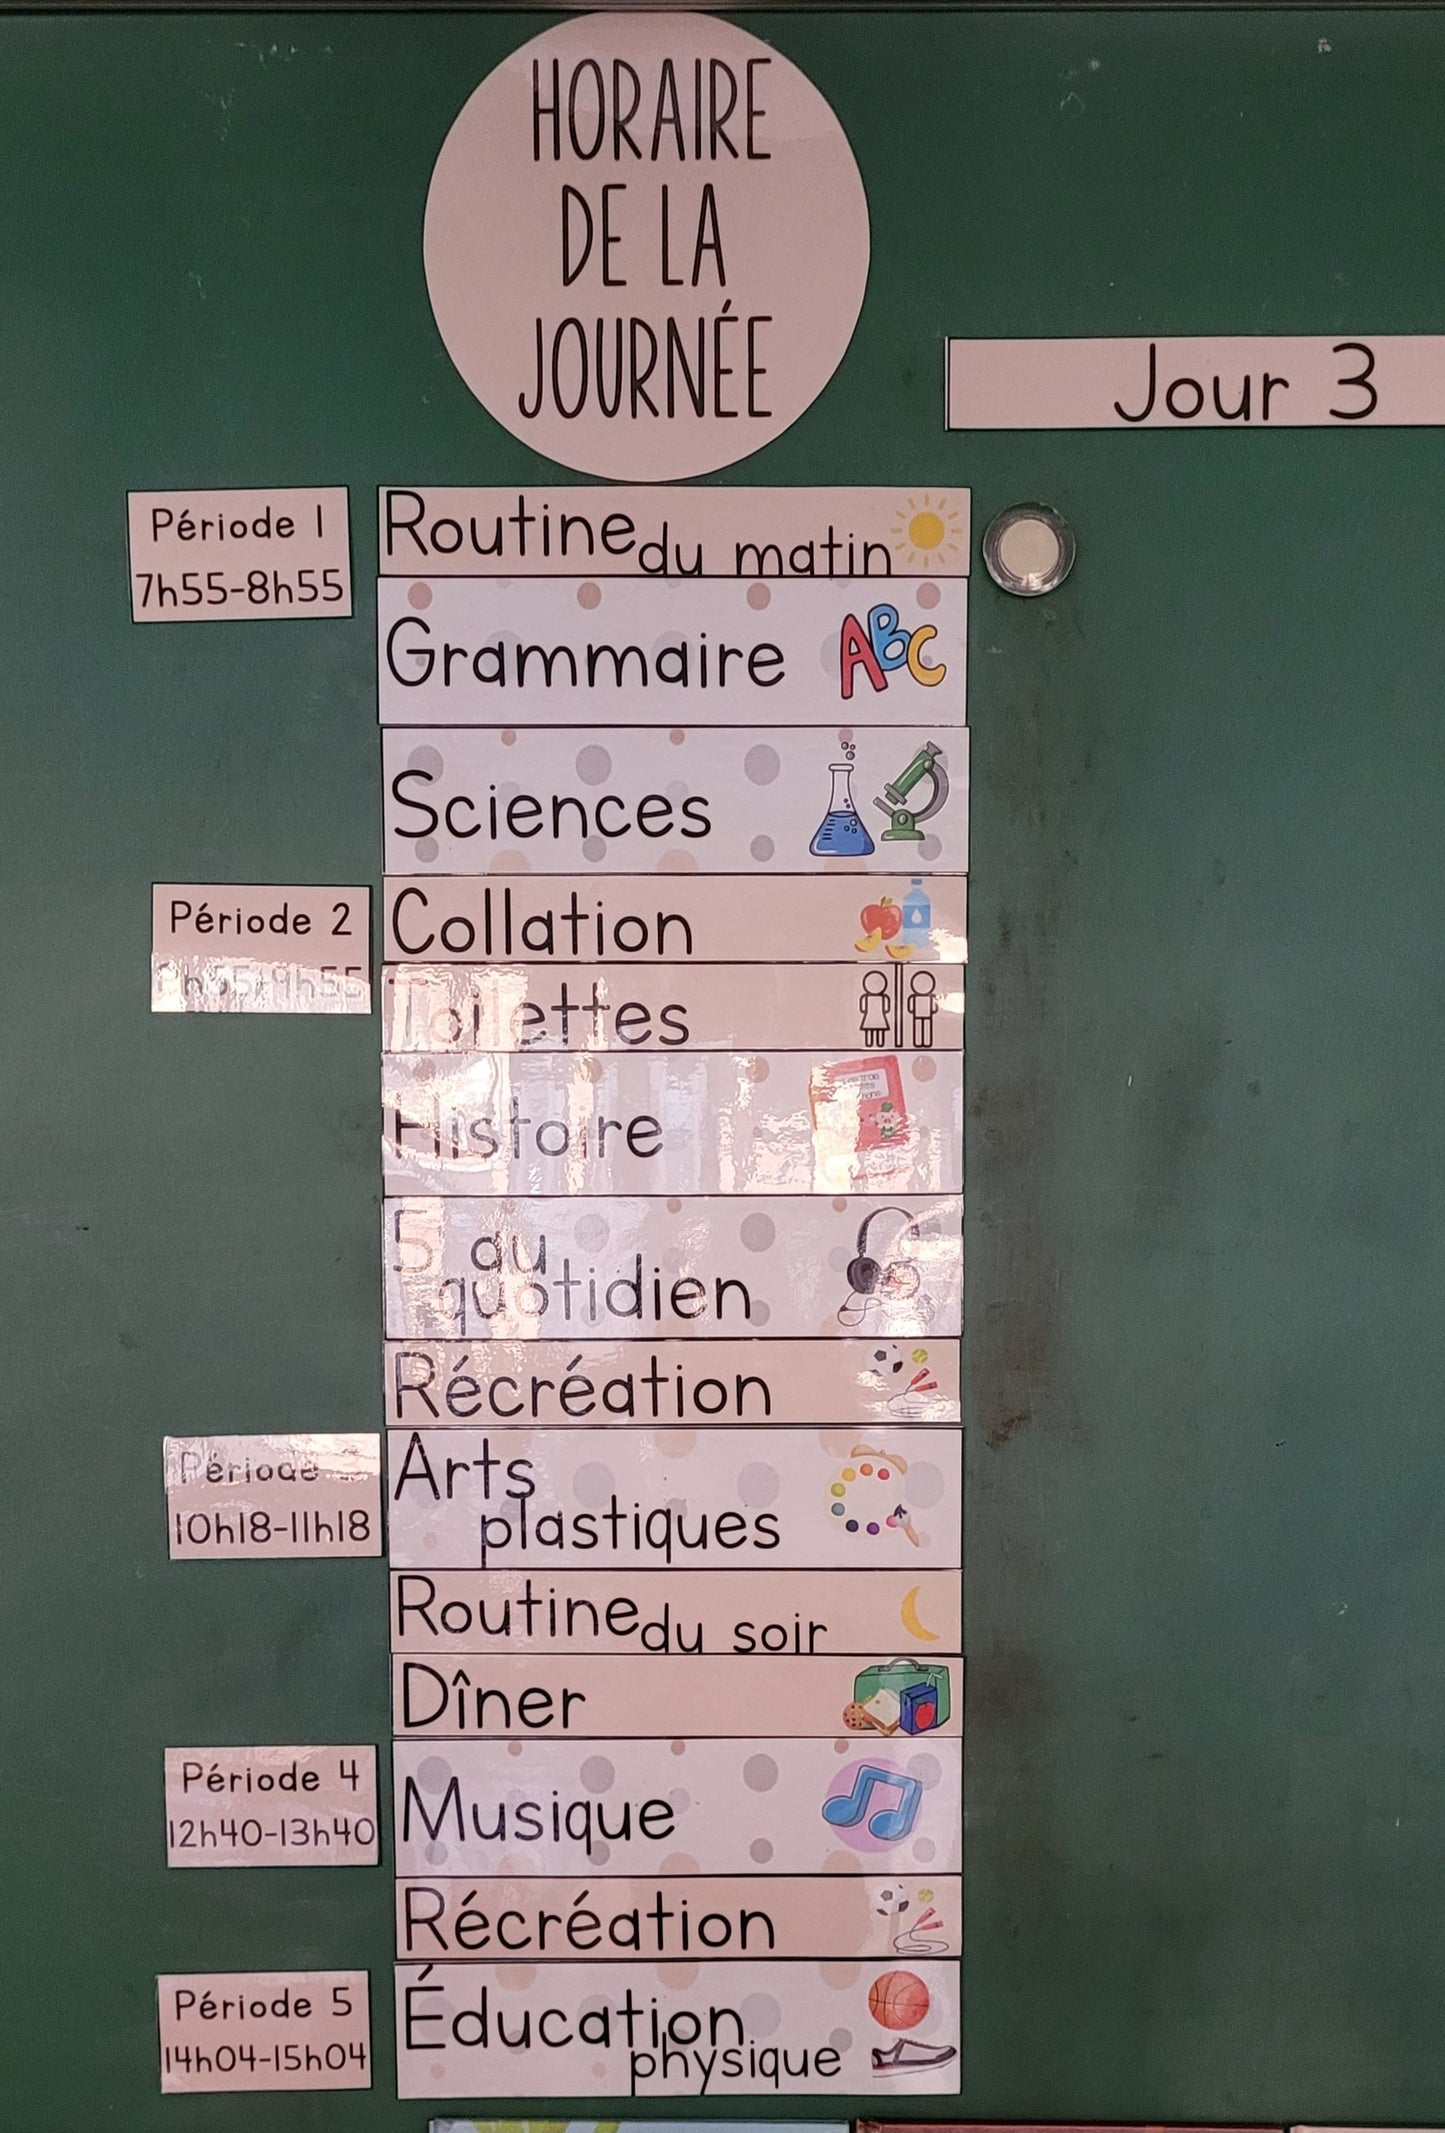 HORAIRE
DE LA
JOURNÉE
Jour 3
Période 1
7h55-8h55
Routine du matin
Grammaire
ABC
Sciences
Période 2
8h55-9h55
Collation
Toilettes
Histoire
5 au
quotidien
Récréation
Période
10h18-11h18
Arts
plastiques
Routine du soir
Dîner
Période 4
12h40-13h40
Musique
Récréation
Période 5
14h04-15h04
Éducation
physique